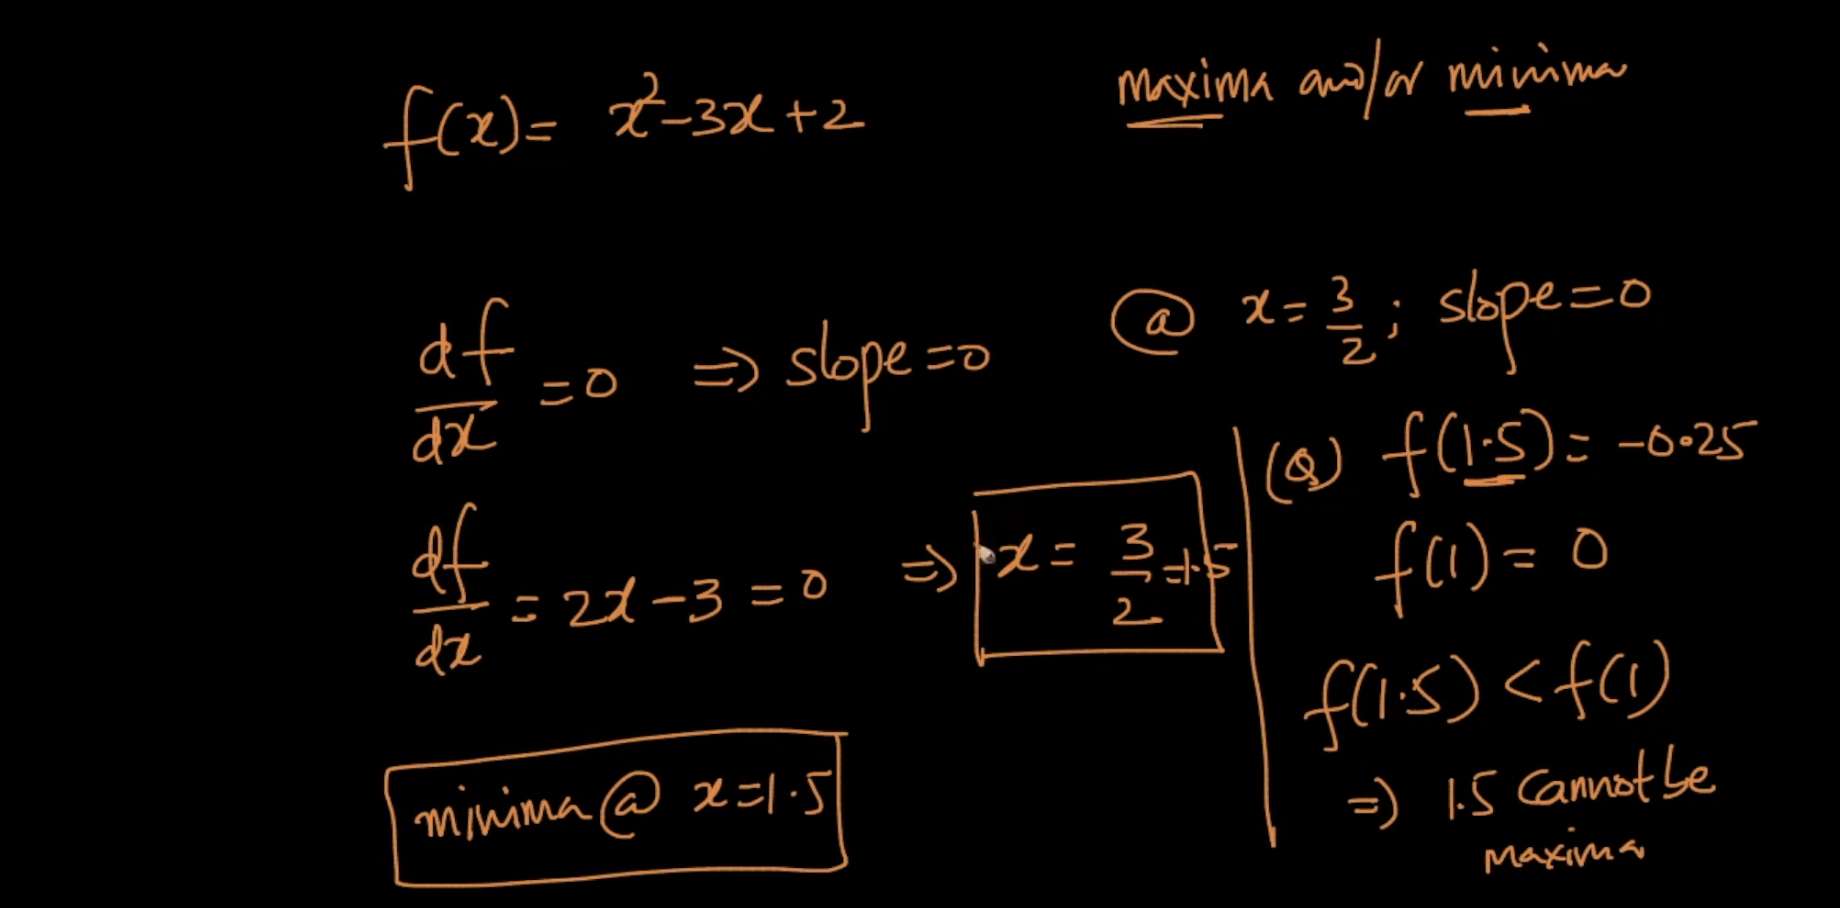 f(x) = x² - 3x + 2
maxima and/or minima
df/dx = 0 ⇒ slope = 0
@ x = 3/2 ; slope = 0
df/dx = 2x - 3 = 0 ⇒ x = 3/2 = 1.5
minima @ x = 1.5
(Q) f(1.5) = -0.25
f(1) = 0
f(1.5) < f(1)
⇒ 1.5 cannot be
maxima